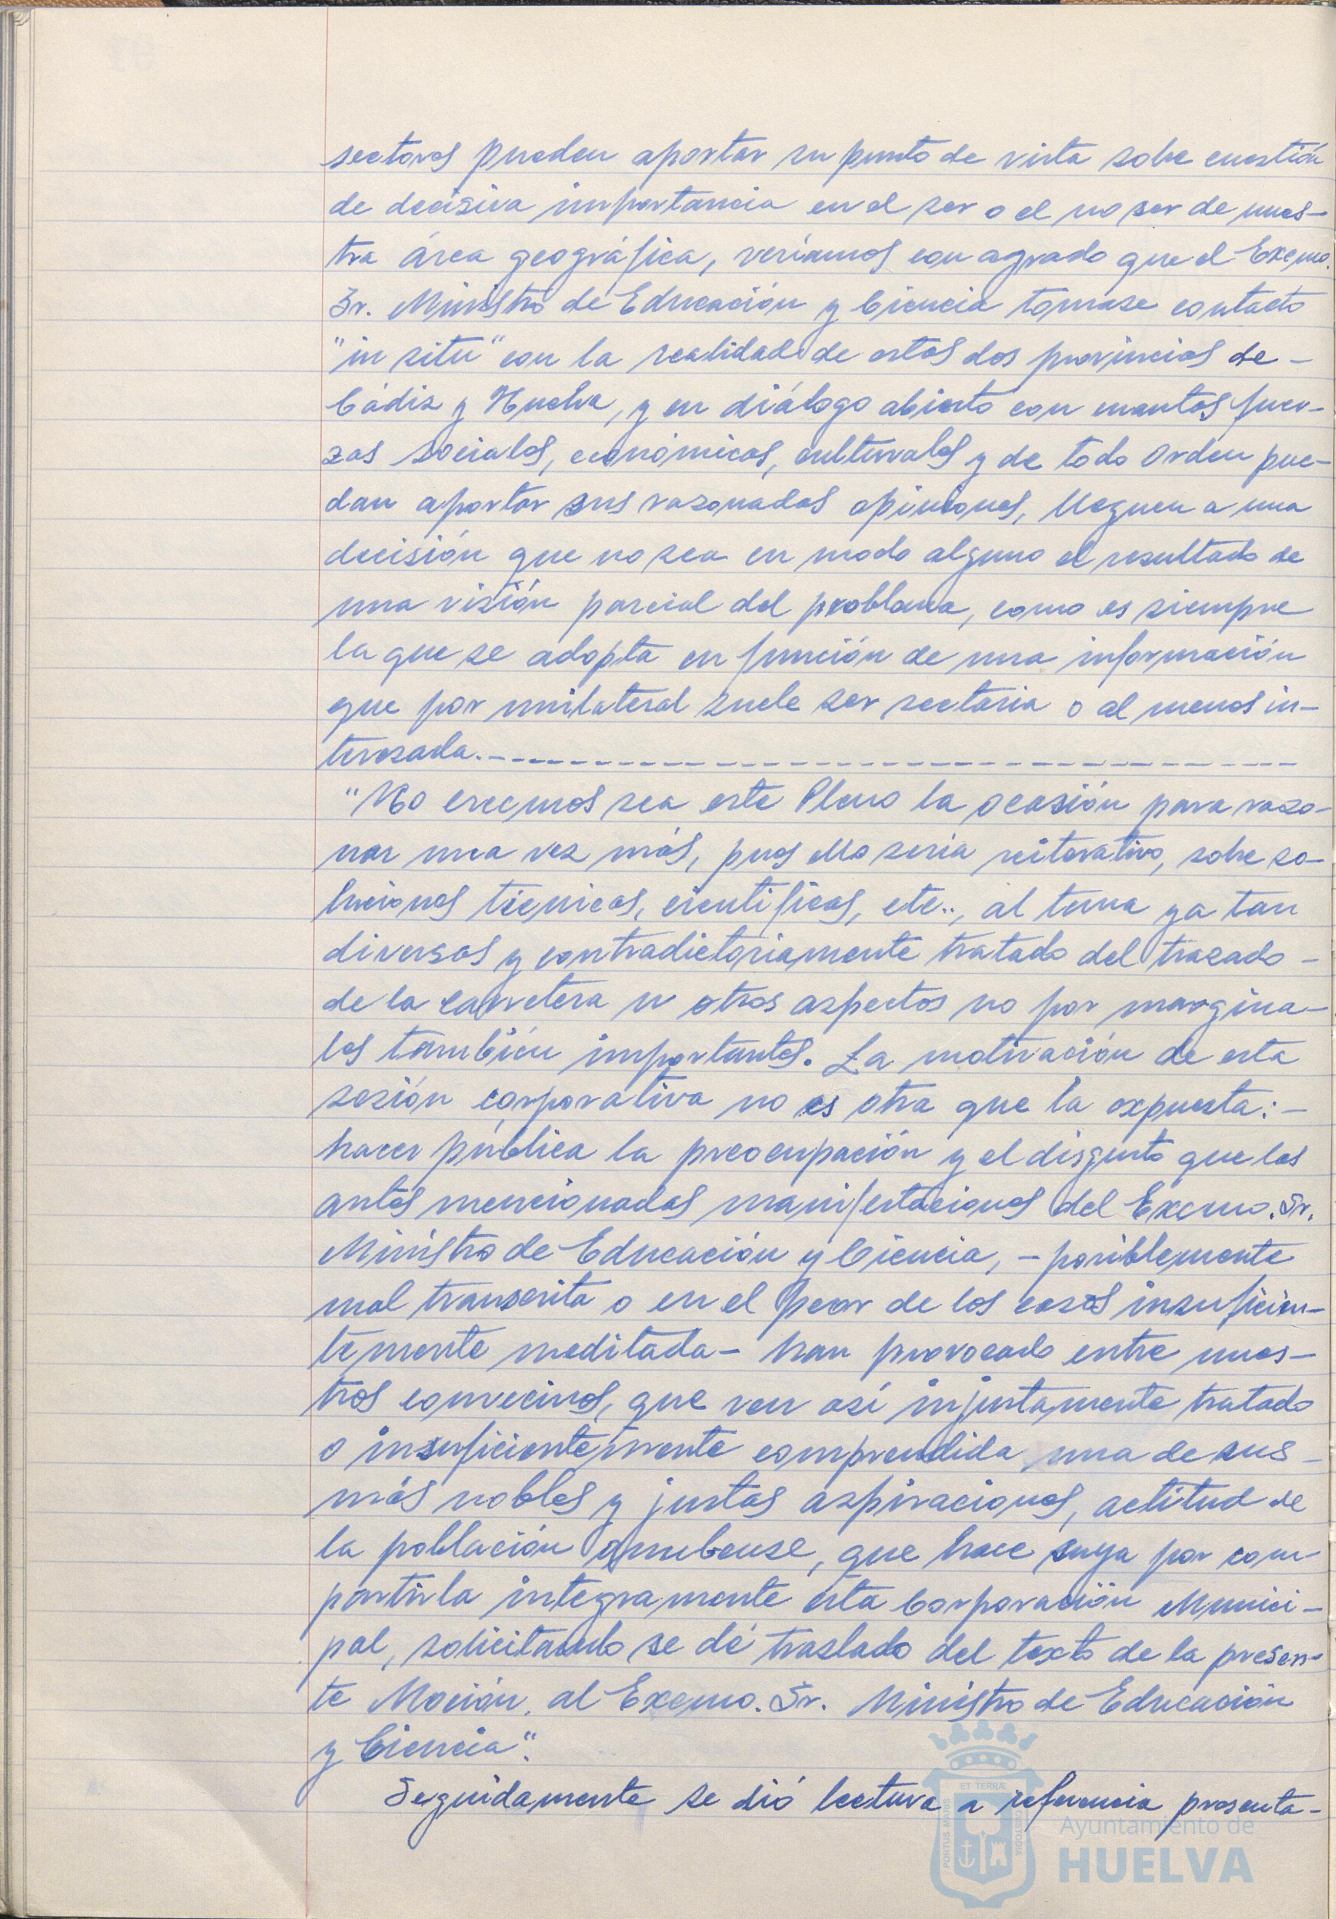 sectores pueden aportar su punto de vista sobre cuestión
de decisiva importancia en el ser o el no ser de nues-
tra área geográfica, veríamos con agrado que el Excmo.
Sr. Ministro de Educación y Ciencia tomase contacto
"in situ" con la realidad de estas dos provincias de -
Cádiz y Huelva, y en diálogo abierto con cuantas fuer-
zas sociales, económicas, culturales y de todo Orden pue-
dan aportar sus razonadas opiniones, lleguen a una
decisión que no sea en modo alguno el resultado de
una visión parcial del problema, como es siempre
la que se adopta en función de una información
que por unilateral suele ser sectaria o al menos in-
teresada.- - - - - - - - - - - - - - - - - - - -
"No creemos sea este Pleno la ocasión para razo-
nar una vez más, pues ello sería reiterativo, sobre so-
luciones técnicas, científicas, etc.., al tema ya tan
diversas y contradictoriamente tratado del trazado -
de la carretera u otros aspectos no por margina-
les también importantes. La motivación de esta
sesión corporativa no es otra que la expuesta: -
hacer pública la preocupación y el disgusto que las
antes mencionadas manifestaciones del Excmo. Sr.
Ministro de Educación y Ciencia, - posiblemente
mal transcrita o en el peor de los casos insuficien-
temente meditada - han provocado entre nues-
tros convecinos, que ven así injustamente tratado
o insuficientemente comprendida una de sus -
más nobles y justas aspiraciones, actitud de
la población onubense, que hace suya por com-
partirla íntegramente esta Corporación Munici-
pal, solicitando se dé traslado del texto de la presen-
te Moción, al Excmo. Sr. Ministro de Educación
y Ciencia".
Seguidamente se dió lectura a referencia presenta-
ET TERRÆ
PORTUS MARIS
CUSTODIA
Ayuntamiento de
HUELVA